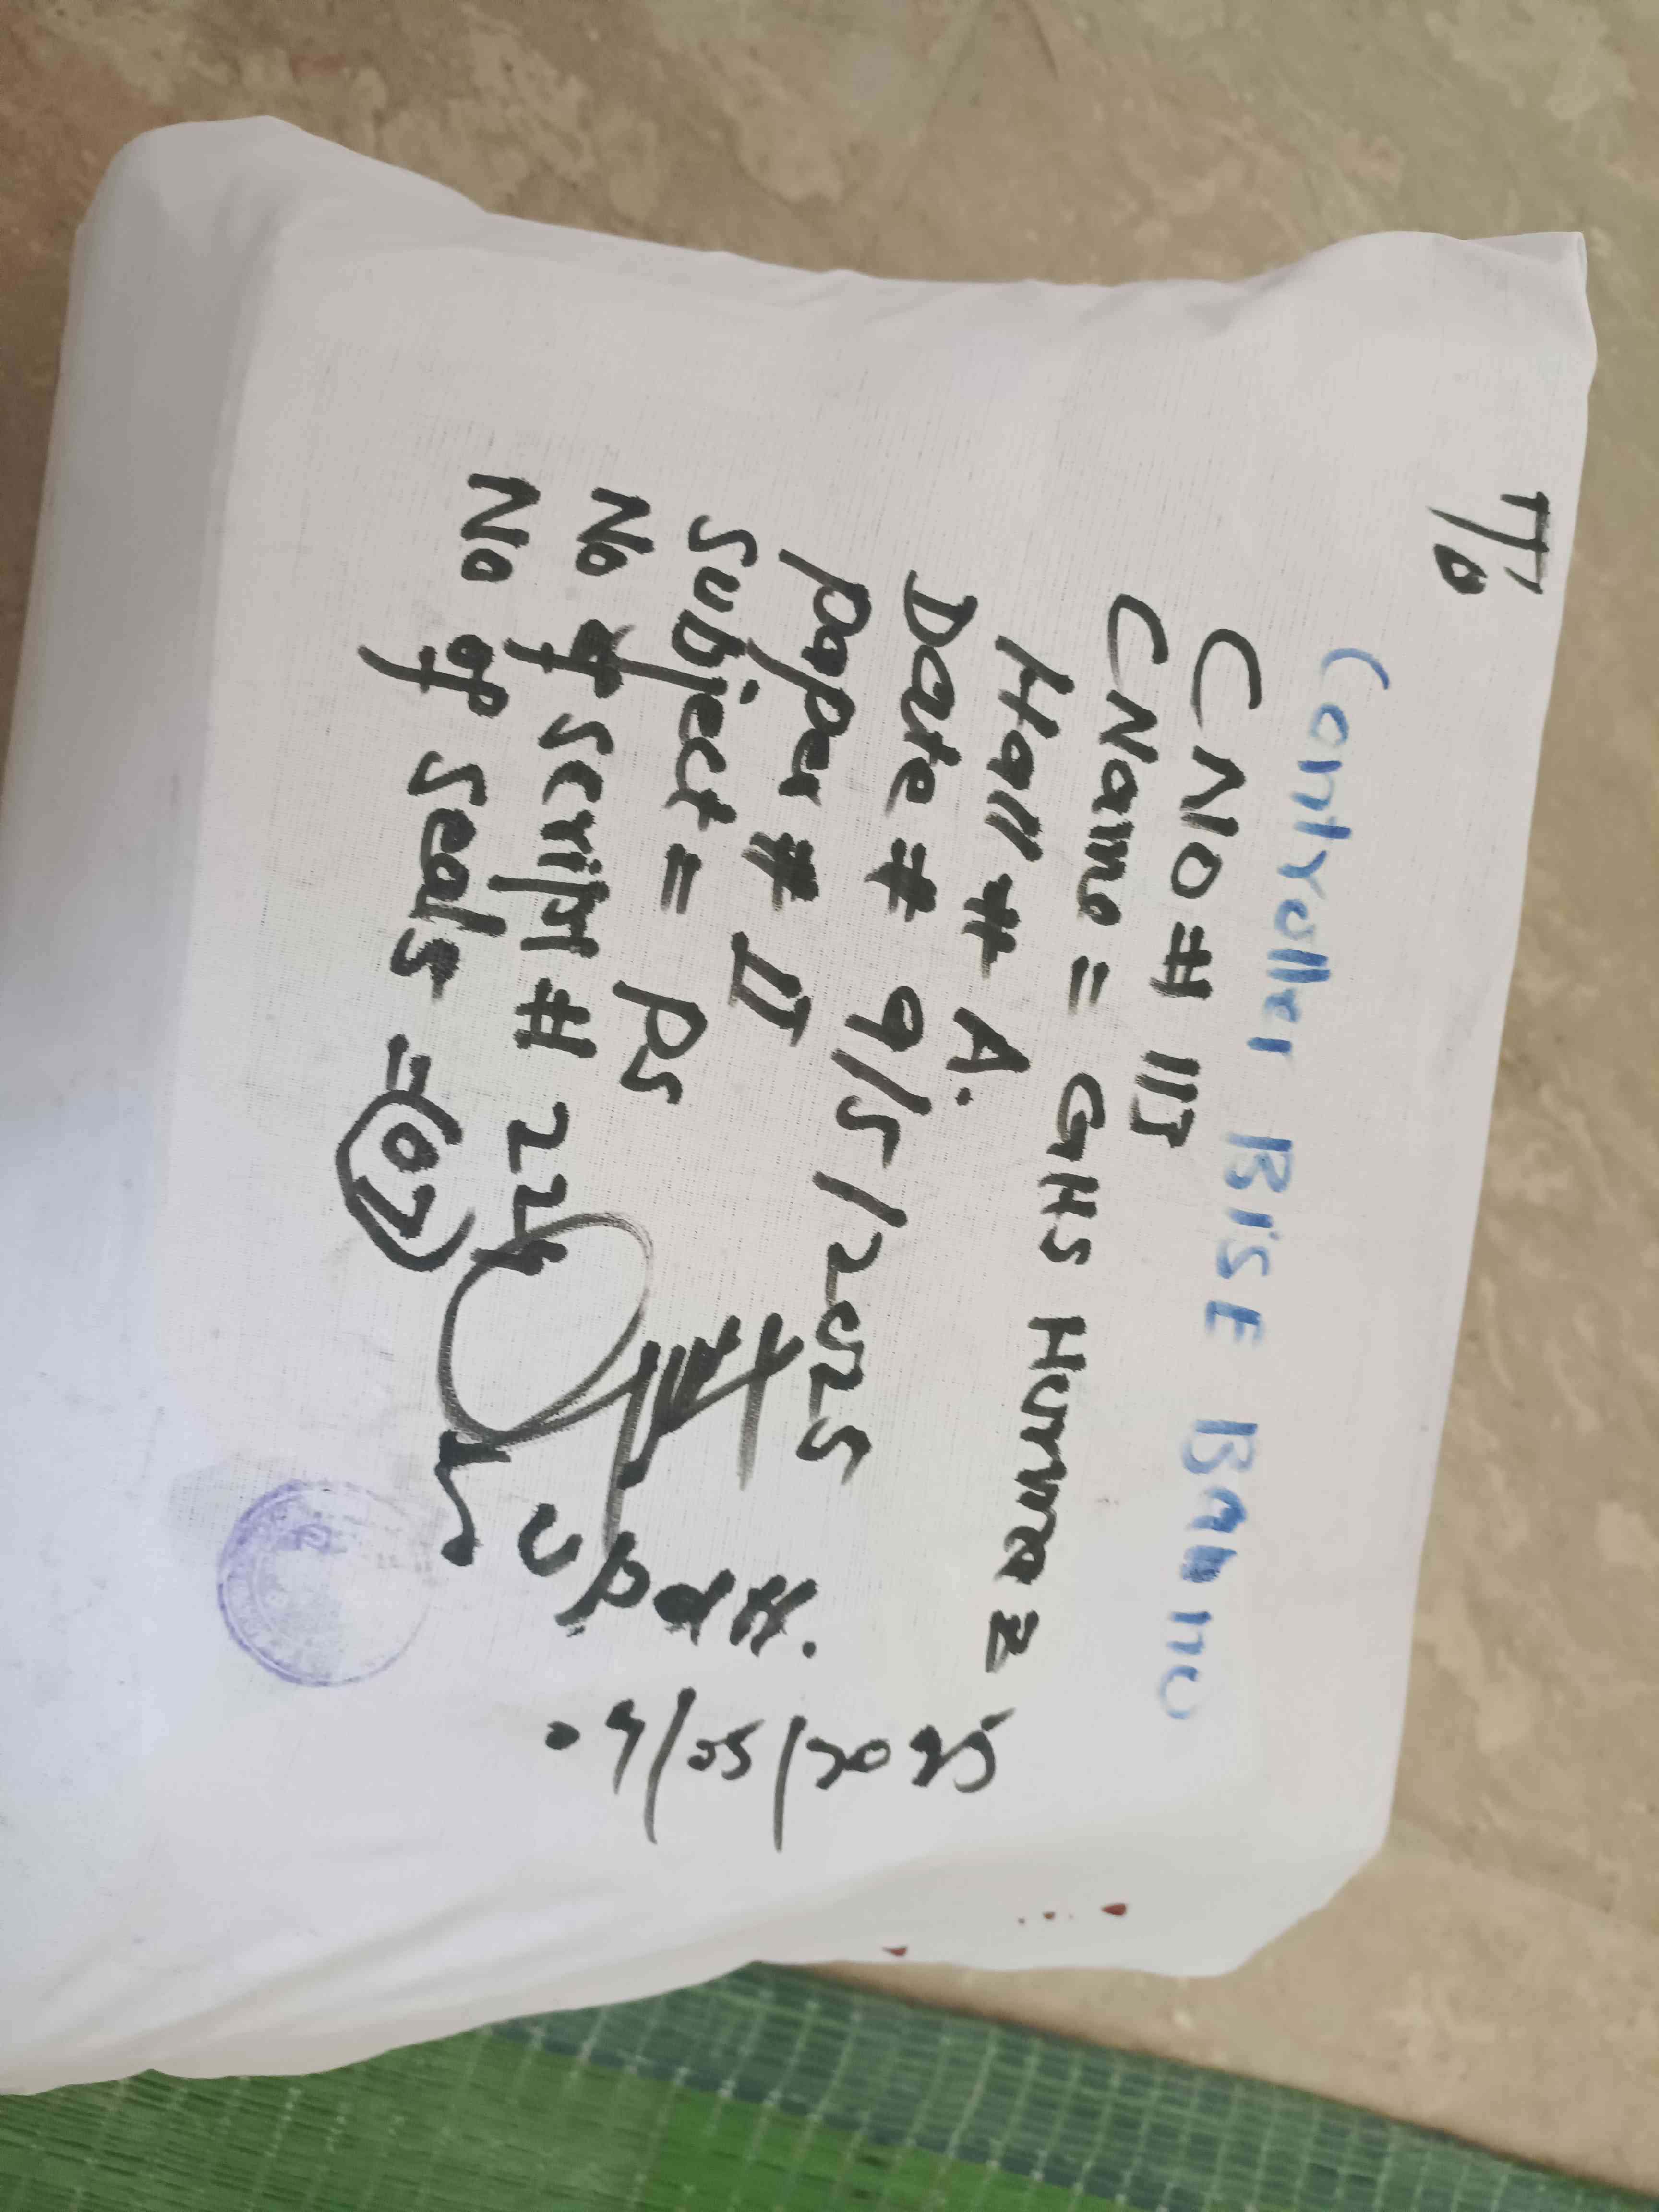 T/o
Controller BISE Bannu
CNO # 115
CName = GHS Humza
Hall # A.
Date # 9/5/2025
Paper # II
Subject = PS
No of script #
No of Seals = 07
09/05/2025